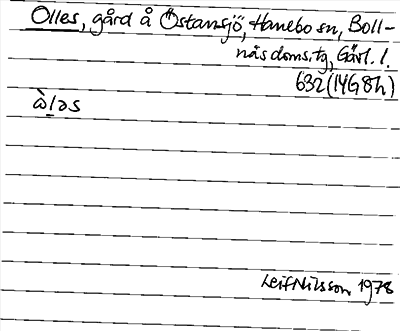 Olles, gård å Östansjö, Hanebo sn, Boll-
näs doms.tg, Gävl. l.
632 (14G8h)
ὰl̠əs
Leif Nilsson 1978